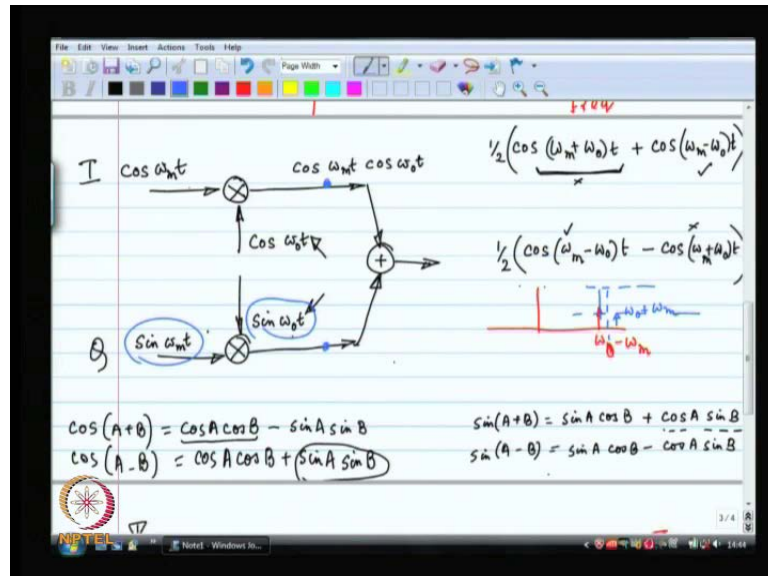 File Edit View Insert Actions Tools Help
Page Width
B I
freq
I cos ωₘt
cos ωₘt cos ω₀t
½(cos (ωₘ+ω₀)t + cos(ωₘ-ω₀)t)
× ✓
cos ω₀t
+
✓ ×
½(cos(ωₘ-ω₀)t - cos(ωₘ+ω₀)t)
sin ω₀t
ω₀+ωₘ
Q sin ωₘt
ω₀-ωₘ
cos(A+B) = cosA cosB - sinA sinB
cos(A-B) = cosA cosB + sinA sinB
sin(A+B) = sinA cosB + cosA sinB
sin(A-B) = sinA cosB - cosA sinB
3/4
NPTEL
Note1 - Windows Jo...
14:44